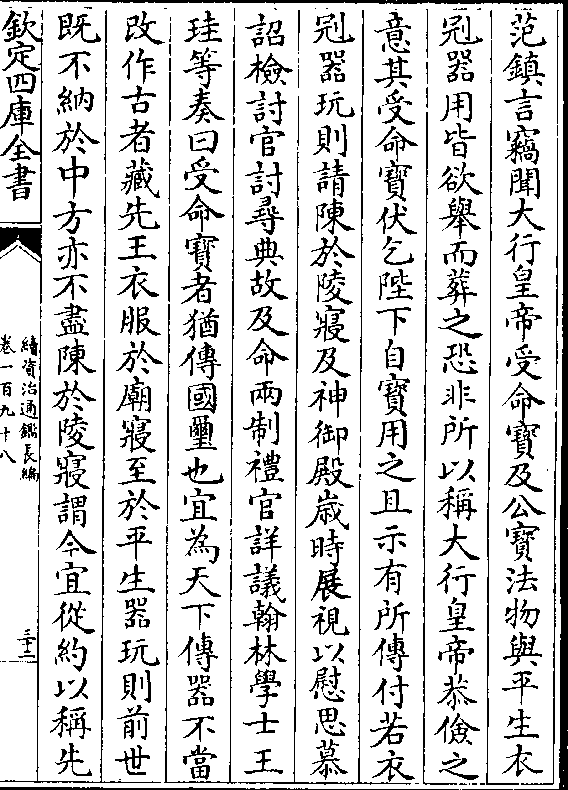 范鎮言竊聞大行皇帝受命寳及公寳法物與平生衣
冠器用皆欲舉而葬之恐非所以稱大行皇帝恭儉之
意其受命寳伏乞陛下自寳用之且示有所傳付若衣
冠器玩則請陳於陵寢及神御殿歲時展視以慰思慕
詔檢討官討尋典故及命兩制禮官詳議翰林學士王
珪等奏曰受命寳者猶傳國璽也宜為天下傳器不當
改作古者藏先王衣服於廟寢至於平生器玩則前世
既不納於中方亦不盡陳於陵寢謂今宜從約以稱先
欽定四庫全書
續資治通鑑長編
卷一百九十八
三十二